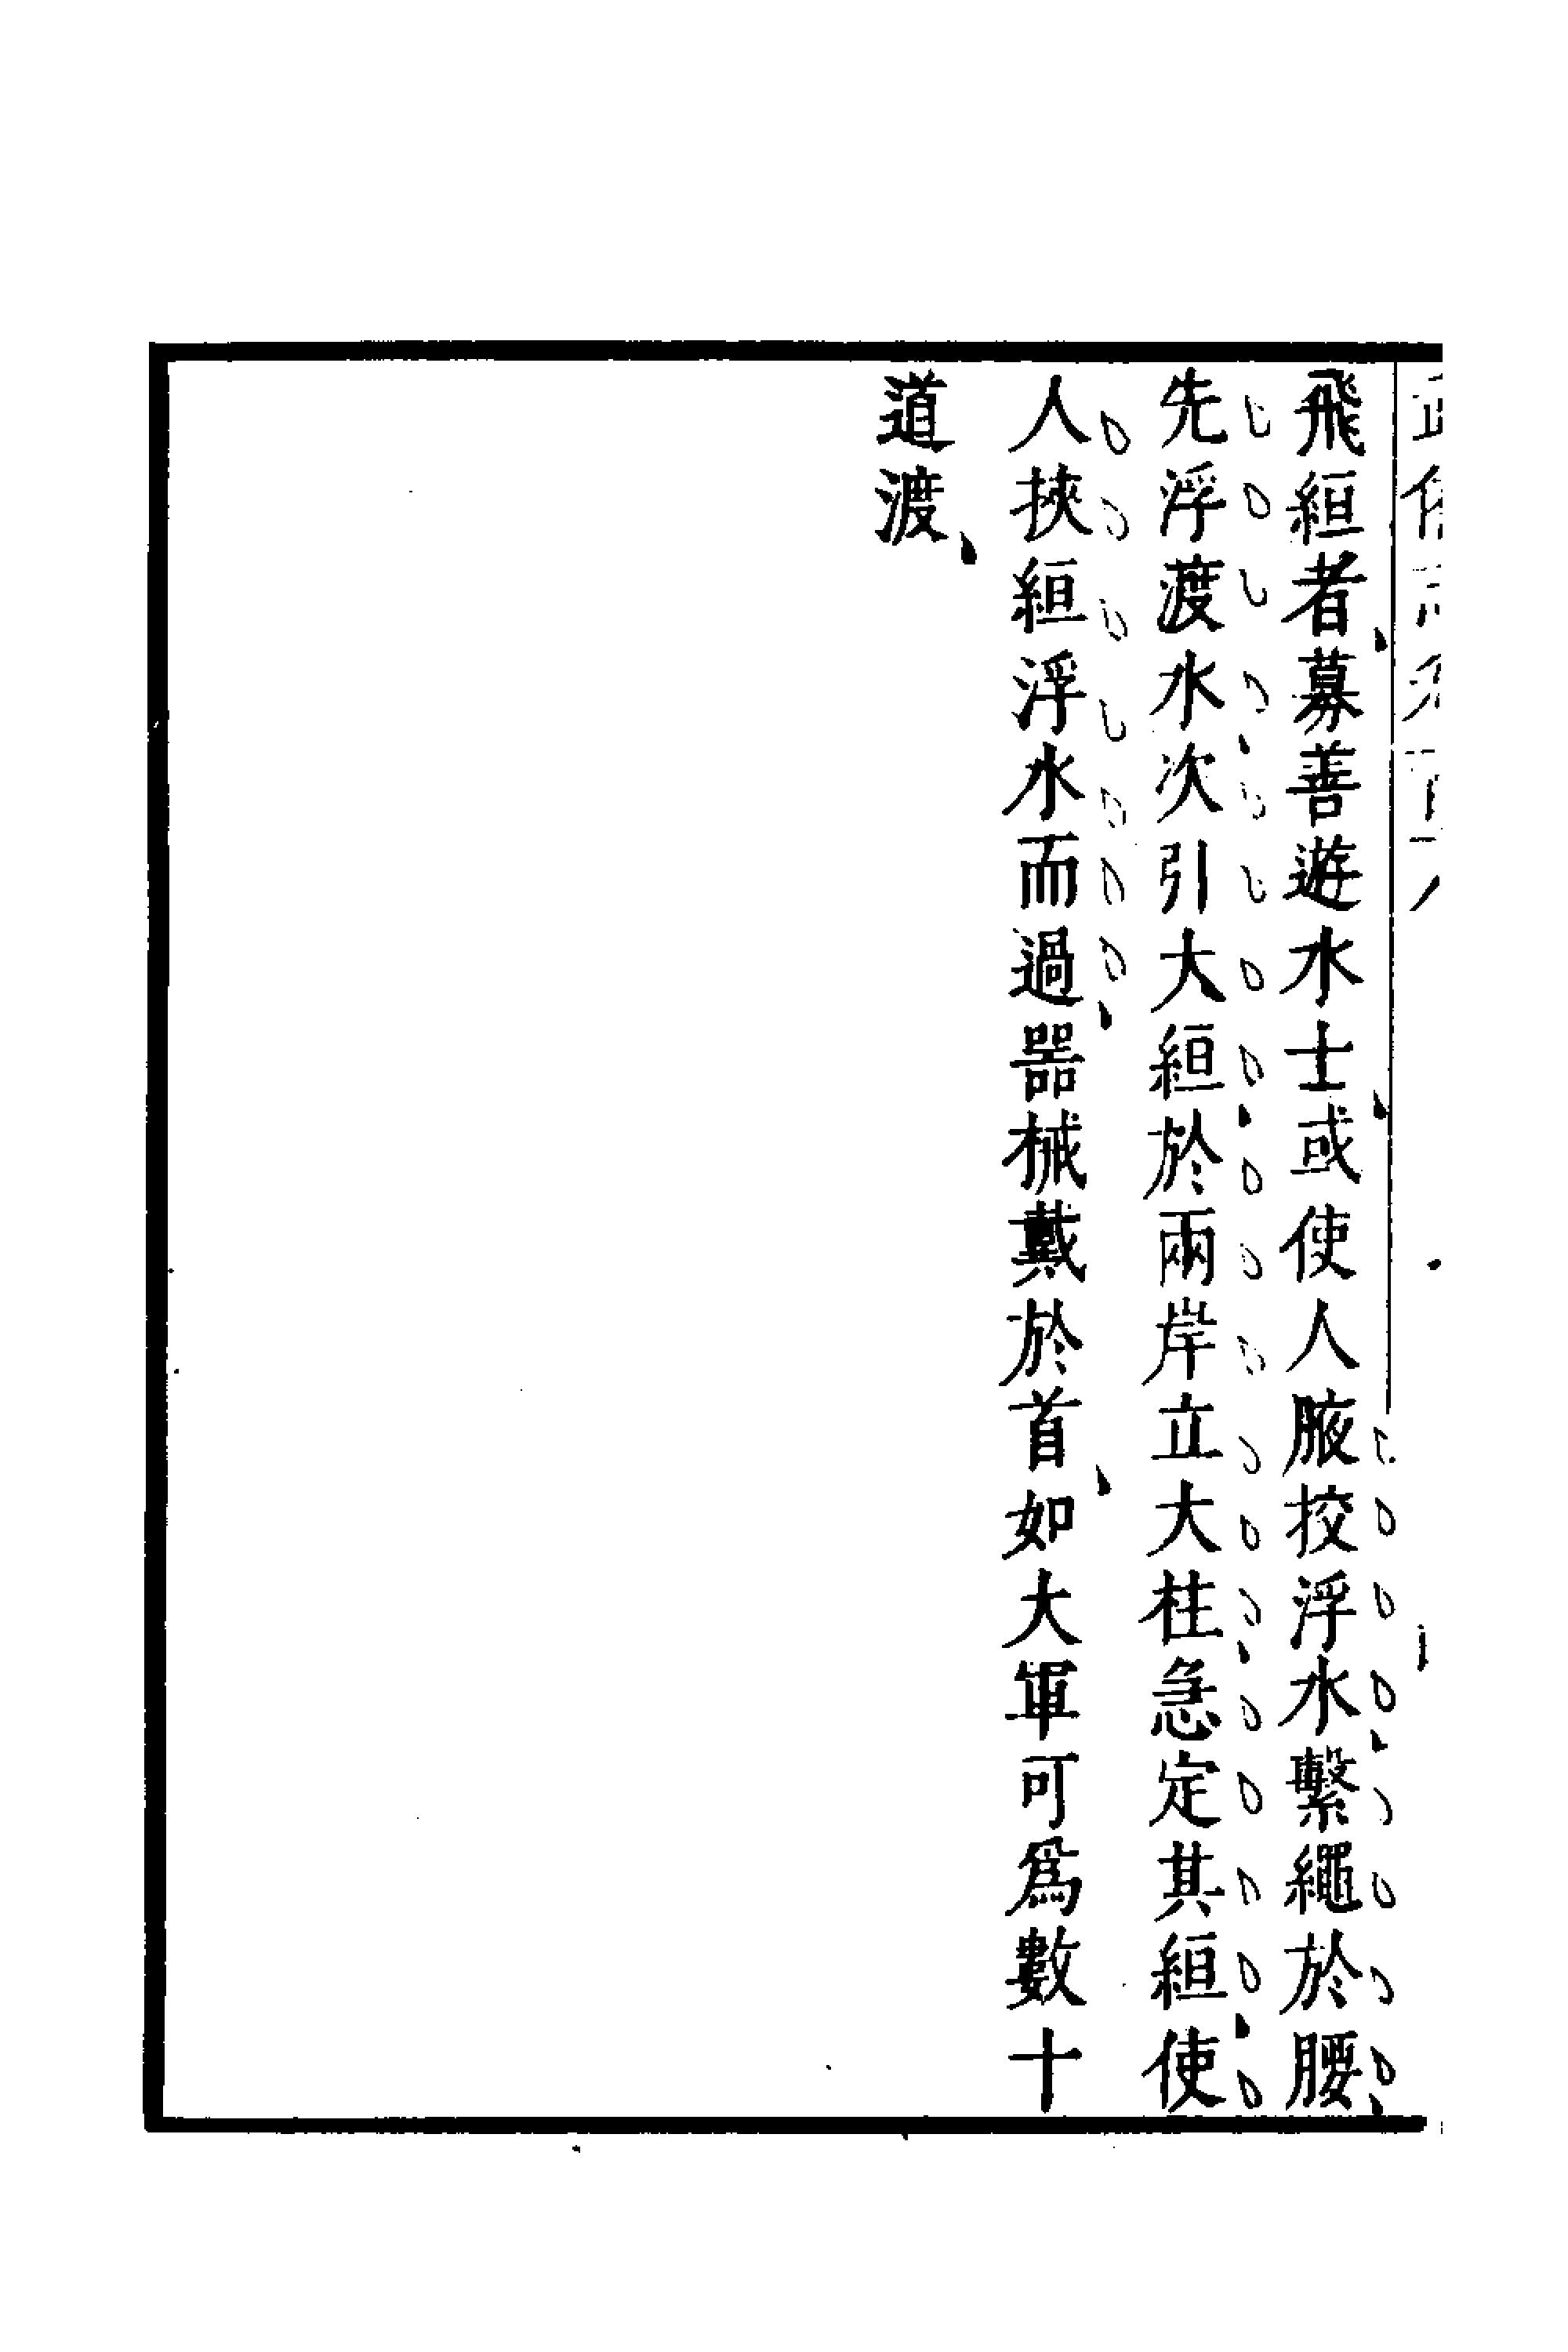 飛絙者募善遊水士或使人腋挍浮水繫繩於腰
先浮渡水次引大絙於兩岸立大柱急定其絙使
人挾絙浮水而過器械戴於首如大軍可爲數十
道渡